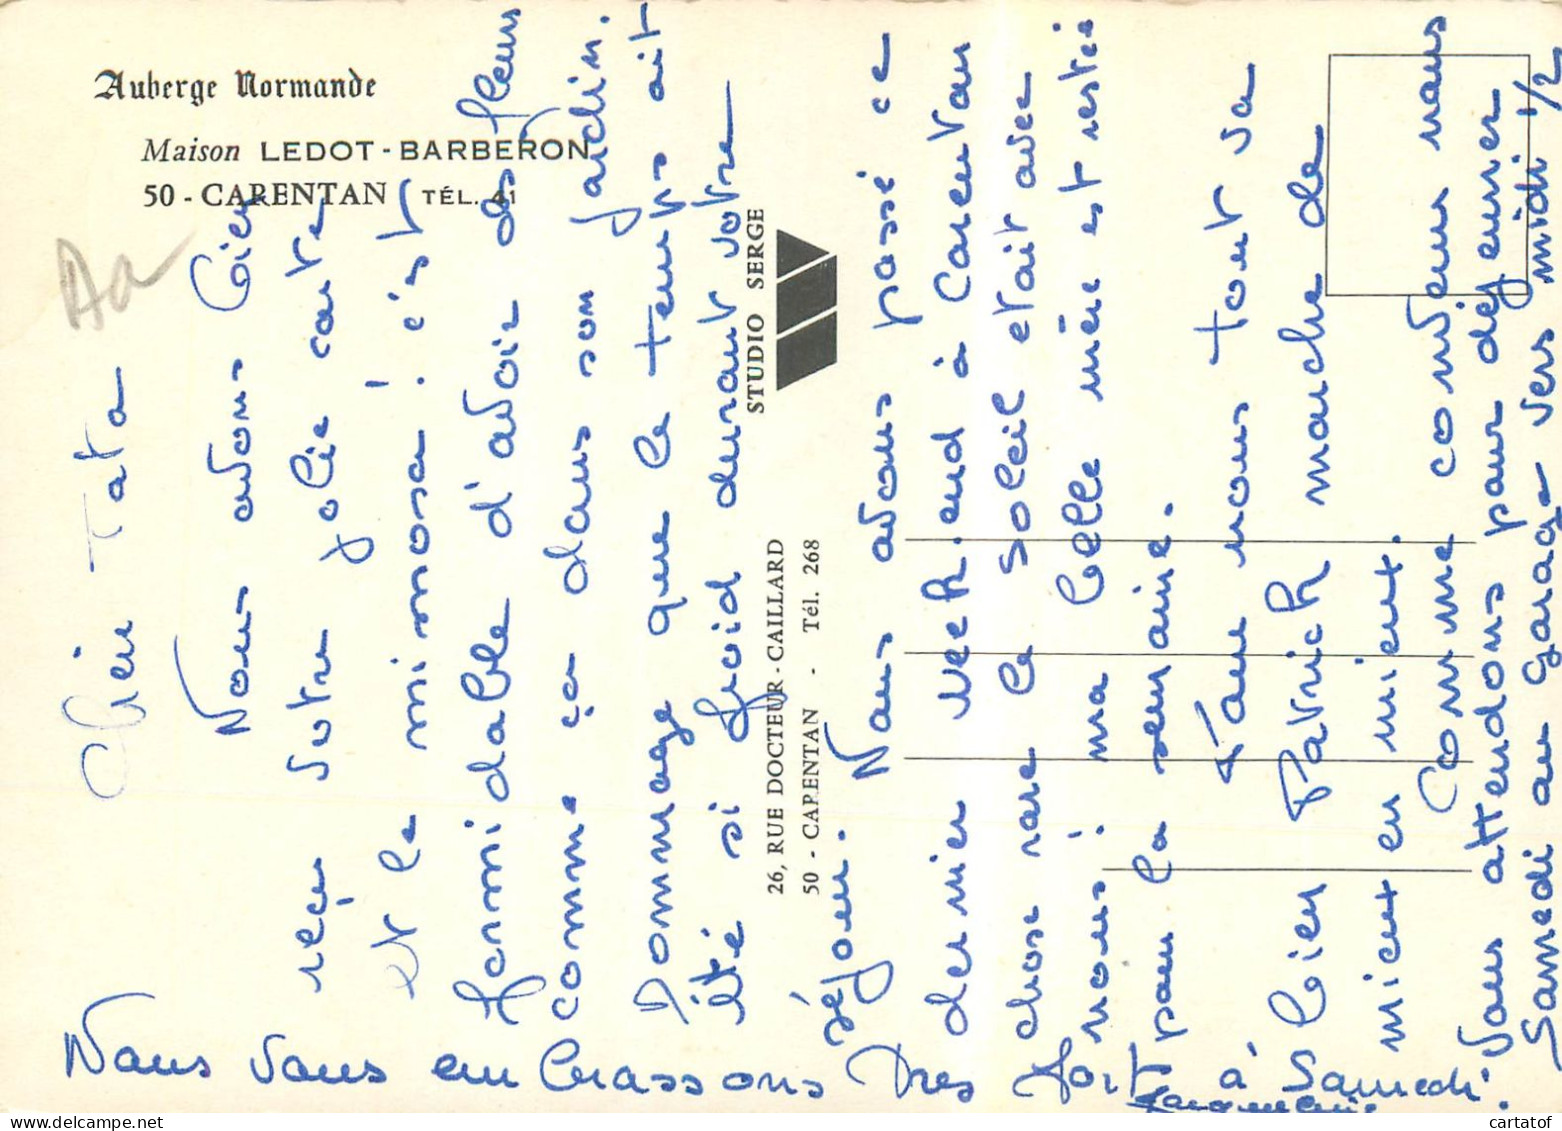 Auberge Normande
Maison LEDOT-BARBERON
50 - CARENTAN TÉL. 41
STUDIO SERGE
26, RUE DOCTEUR-CAILLARD
50 - CARENTAN - Tél. 268
Aa
Chère Tata
Nous avons bien
reçu votre jolie carte
et le mimosa ! c'est
formidable d'avoir des fleurs
comme ça dans son jardin.
Dommage que le temps ait
été si froid durant votre
séjour.
Nous avons passé ce
dernier week-end à Carentan
chose rare le soleil était avec
nous ! ma belle mère est restée
pour la semaine.
Pour nous tout va
bien Patrick marche de
mieux en mieux.
Comme convenu nous
vous attendons pour déjeuner
Samedi au garage vers midi 1/2
Nous vous embrassons très fort à Samedi.
cartatof